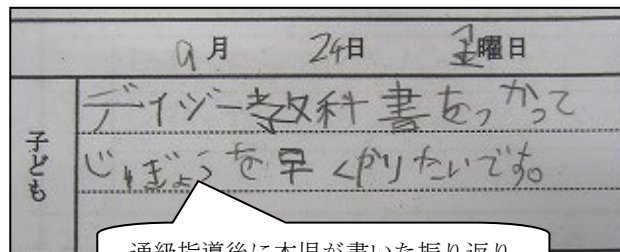 9月 24日 金曜日
子ども
デイジー教科書をつかって
じゅぎょうを早くやりたいです。
通級指導後に本児が書いた振り返り